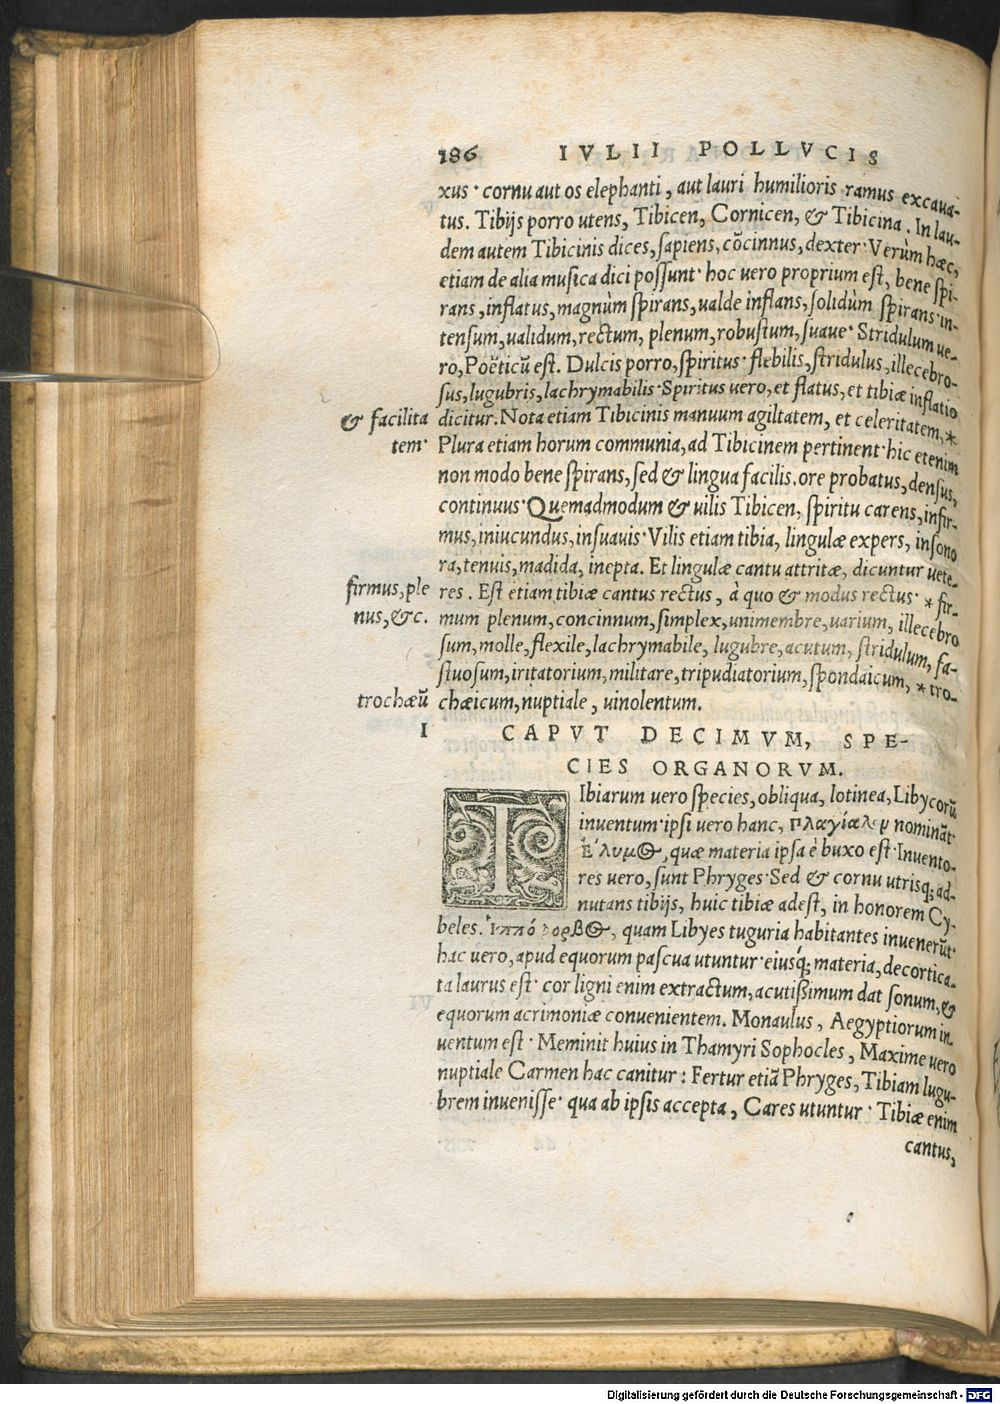 186 IVLII POLLVCIS
xus· cornu aut os elephanti, aut lauri humilioris ramus excaua-
tus. Tibijs porro utens, Tibicen, Cornicen, & Tibicina. In lau-
dem autem Tibicinis dices, sapiens, cōcinnus, dexter· Verùm hæc,
etiam de alia musica dici possunt· hoc uero proprium est, bene spi-
rans, inflatus, magnùm spirans, ualde inflans, solidùm spirans· in-
tensum, ualidum, rectum, plenum, robustum, suaue· Stridulum ue-
ro, Poëticū est. Dulcis porro, spiritus· flebilis, stridulus, illecebro-
sus, lugubris, lachrymabilis· Spiritus uero, et flatus, et tibiæ inflatio
& facilita dicitur. Nota etiam Tibicinis manuum agiltatem, et celeritatem, *
tem· Plura etiam horum communia, ad Tibicinem pertinent· hic etenim
non modo bene spirans, sed & lingua facilis. ore probatus, densus,
continuus· Quemadmodum & uilis Tibicen, spiritu carens, infir-
mus, iniucundus, insuauis· Vilis etiam tibia, lingulæ expers, insono
ra, tenuis, madida, inepta. Et lingulæ cantu attritæ, dicuntur uete-
firmus, ple res. Est etiam tibiæ cantus rectus, à quo & modus rectus· * fir-
nus, &c. mum plenum, concinnum, simplex, unimembre, uarium, illecebro
sum, molle, flexile, lachrymabile, lugubre, acutum, stridulum, fa-
stuosum, iritatorium, militare, tripudiatorium, spondaicum, * tro-
trochæū chæicum, nuptiale, uinolentum.
I CAPVT DECIMVM, SPE-
CIES ORGANORVM.
TIbiarum uero species, obliqua, lotinea, Libycorū
inuentum· ipsi uero hanc, πλαγίαλον nomināt·
Ἔλυμος, quæ materia ipsa è buxo est· Inuento-
res uero, sunt Phryges· Sed & cornu utrisq; ad-
nutans tibijs, huic tibiæ adest, in honorem Cy-
beles. Ἱπποφορβος, quam Libyes tuguria habitantes inuenerūt·
hac uero, apud equorum pascua utuntur· eiusq́; materia, decortica-
ta laurus est· cor ligni enim extractum, acutissimum dat sonum, &
equorum acrimoniæ conuenientem. Monaulus, Aegyptiorum in
uentum est· Meminit huius in Thamyri Sophocles, Maxime uero
nuptiale Carmen hac canitur: Fertur etiā Phryges, Tibiam lugu-
brem inuenisse· qua ab ipsis accepta, Cares utuntur· Tibiæ enim
cantus,
Digitalisierung gefördert durch die Deutsche Forschungsgemeinschaft - DFG